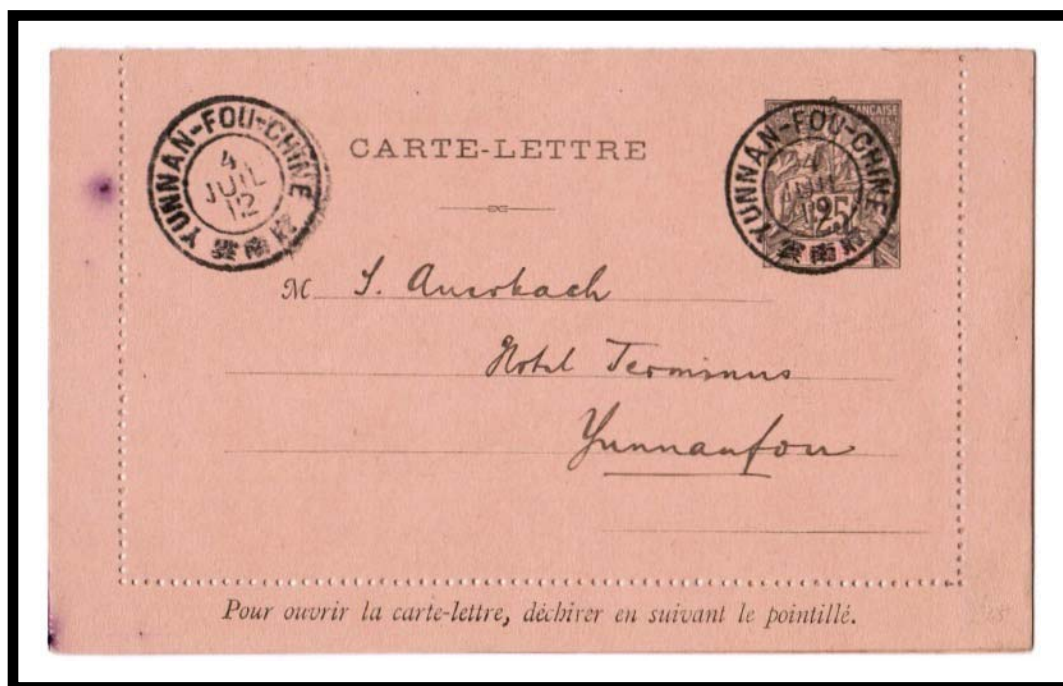 YUNNAN-FOU-CHINE
4
JUIL
12
雲南府
CARTE-LETTRE
YUNNAN-FOU-CHINE
4
JUIL
12
雲南府
25
M S. Auerbach
Hotel Terminus
Yunnanfou
Pour ouvrir la carte-lettre, déchirer en suivant le pointillé.